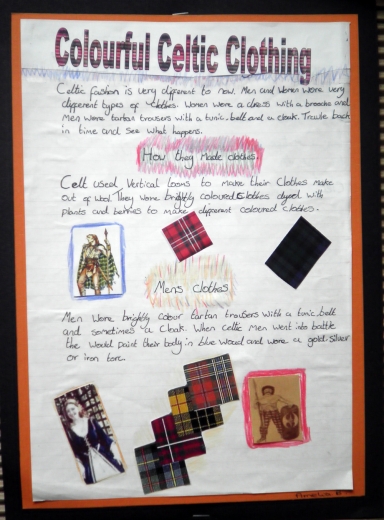 Colourful Celtic Clothing
Celtic fashion is very different to now. Men and Women wore very
different types of clothes. Women wore a dress with a brooche and
Men wore tartan trousers with a tunic, belt and a cloak. Travle back
in time and see what happens.
How they Made clothes
Celt used Vertical looms to make their Clothes make
out of wool. They wore brightly coloured Clothes dyed with
plants and berries to make different coloured clothes.
Mens Clothes
Men wore brightly colour tartan trousers with a tunic, belt
and sometimes a Cloak. When Celtic Men went into battle
the would paint their body in blue woad and wore a gold, silver
or iron torc.